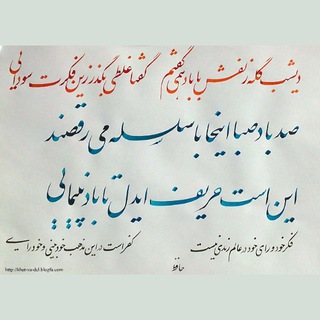 دیشب گله زلفش با باد همی گفتم گفتا غلطی بگذر زین فکرت سودایی
صد باد صبا اینجا با سلسله می رقصند
این است حریف ایدل تا باد نپیمایی
فکر خود و رای خود در عالم رندی نیست کفر است در این مذهب خودبینی و خودرایی
حافظ
http://khat-va-del.blogfa.com